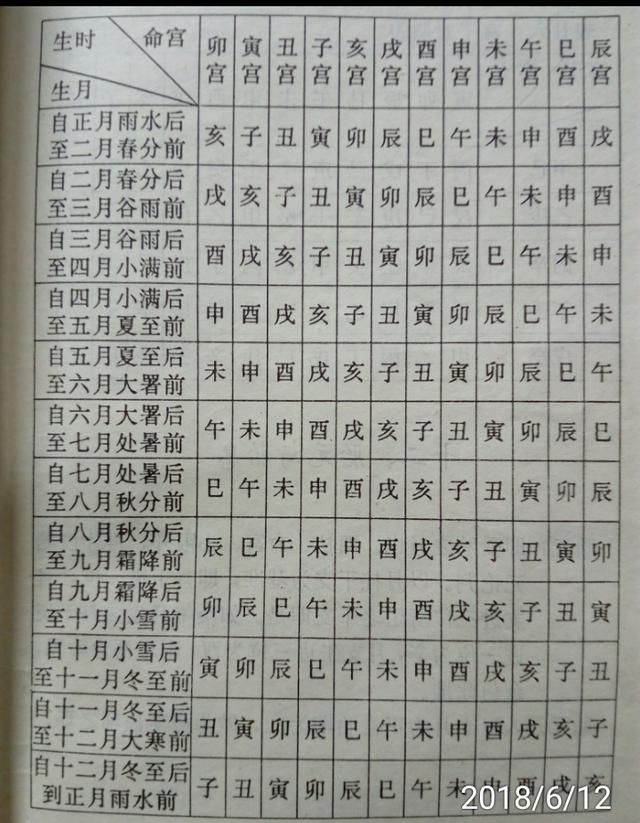 生时 命宫 卯宫 寅宫 丑宫 子宫 亥宫 戌宫 酉宫 申宫 未宫 午宫 巳宫 辰宫
生月
自正月雨水后
至二月春分前 亥 子 丑 寅 卯 辰 巳 午 未 申 酉 戌
自二月春分后
至三月谷雨前 戌 亥 子 丑 寅 卯 辰 巳 午 未 申 酉
自三月谷雨后
至四月小满前 酉 戌 亥 子 丑 寅 卯 辰 巳 午 未 申
自四月小满后
至五月夏至前 申 酉 戌 亥 子 丑 寅 卯 辰 巳 午 未
自五月夏至后
至六月大署前 未 申 酉 戌 亥 子 丑 寅 卯 辰 巳 午
自六月大署后
至七月处暑前 午 未 申 酉 戌 亥 子 丑 寅 卯 辰 巳
自七月处暑后
至八月秋分前 巳 午 未 申 酉 戌 亥 子 丑 寅 卯 辰
自八月秋分后
至九月霜降前 辰 巳 午 未 申 酉 戌 亥 子 丑 寅 卯
自九月霜降后
至十月小雪前 卯 辰 巳 午 未 申 酉 戌 亥 子 丑 寅
自十月小雪后
至十一月冬至前 寅 卯 辰 巳 午 未 申 酉 戌 亥 子 丑
自十一月冬至后
至十二月大寒前 丑 寅 卯 辰 巳 午 未 申 酉 戌 亥 子
自十二月冬至后
到正月雨水前 子 丑 寅 卯 辰 巳 午 未 申 酉 戌 亥
2018/6/12